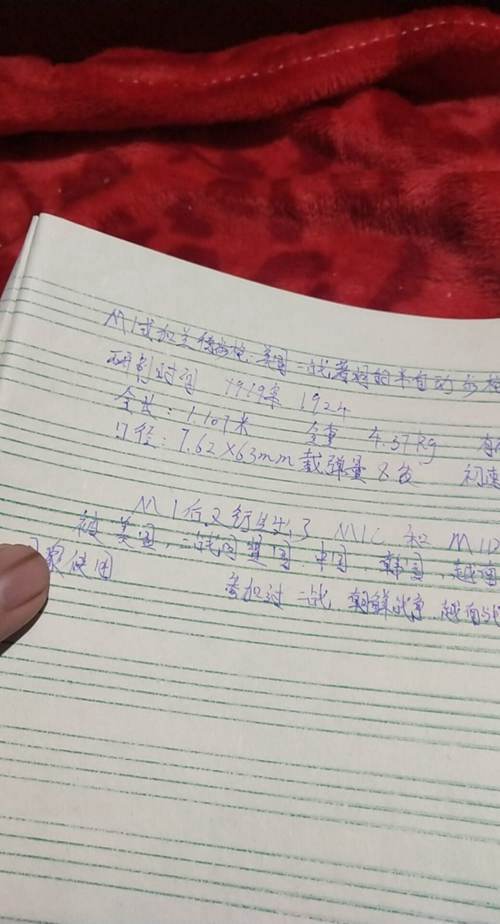 M1式加兰德步枪. 美国二战著名的半自动步枪
研制时间 1919年 1924
全长: 1.107米 全重 4.37kg
口径: 7.62×63mm 载弹量 8发 初速
M1后又衍生了 M1C 和 M1D
被美国, 二战同盟国. 中国, 韩国, 越南
国家使用 参加过 二战 朝鲜战争, 越南战